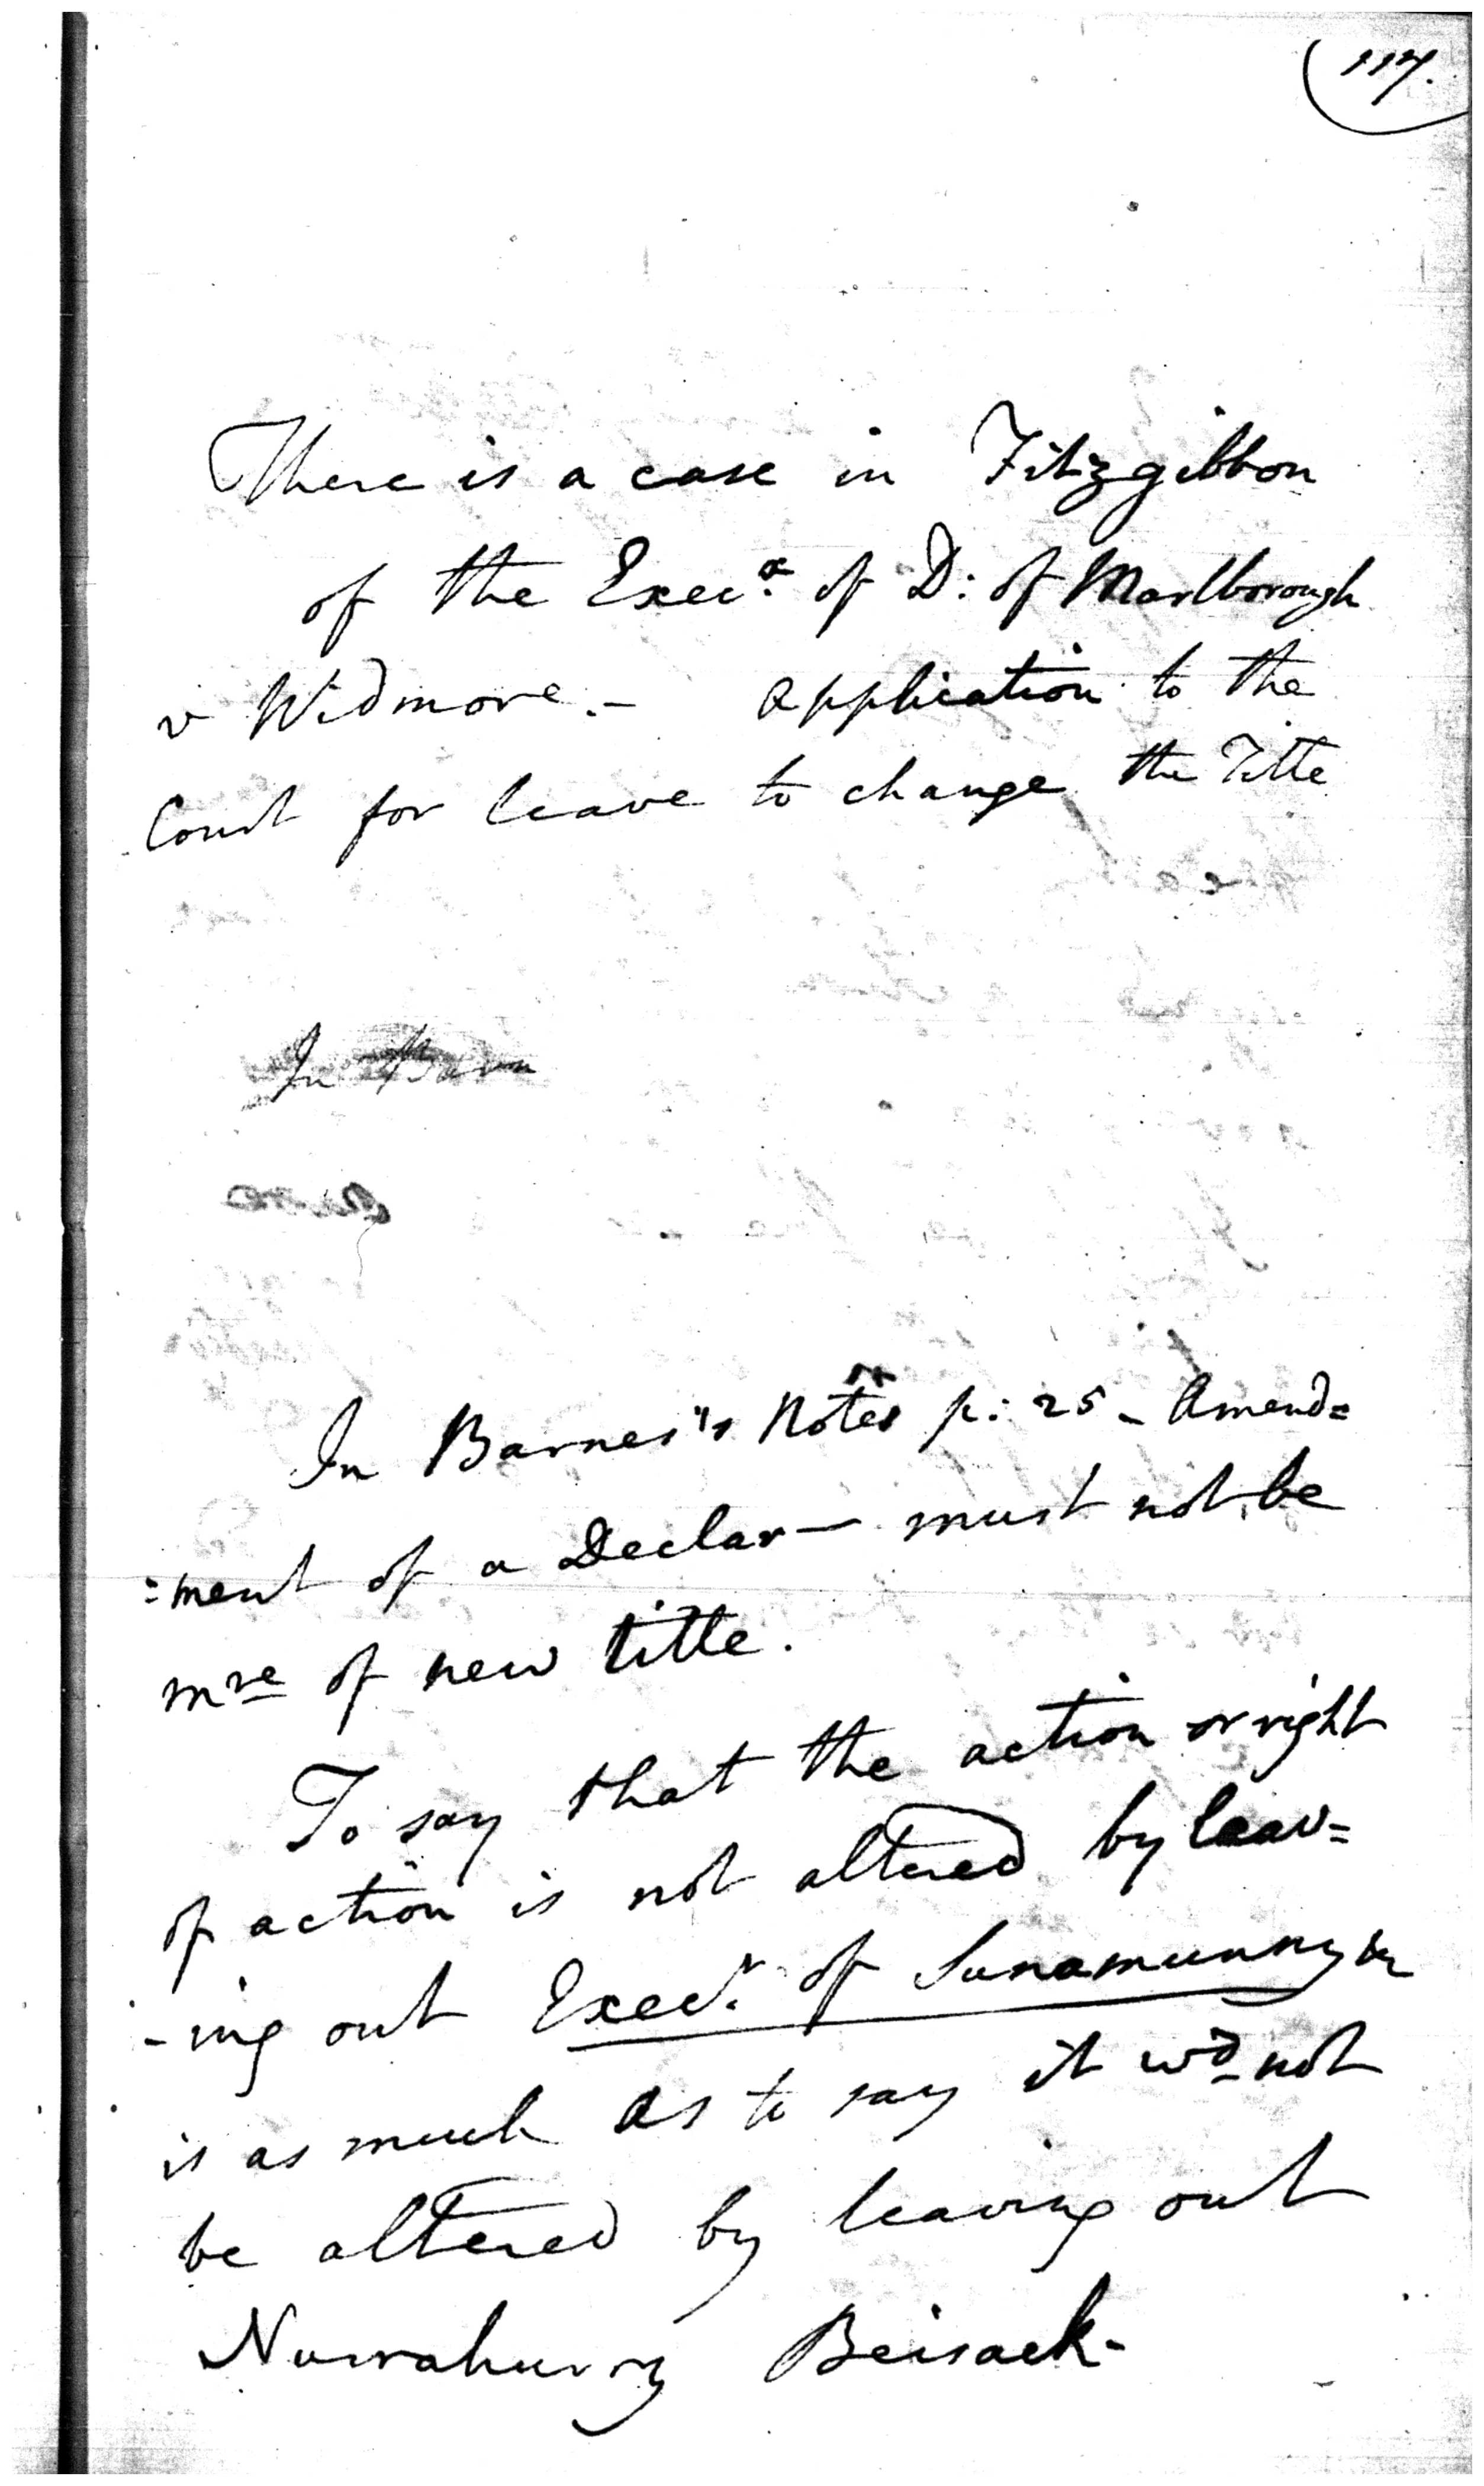 117.
There is a case in Fitzgibbon
of the Execx. of D: of Marlborough
v Widmore.- application to the
Court for leave to change the Title
In Barn
In Barnes's Notes p: 25 - Amend=
=ment of a Declar— must not be
mre of new title.
To say that the action or right
of action is not altered by leav=
-ing out Execr. of Sunamunny &
is as much as to say it wd not
be altered by leaving out
Nurrahurry Beisack-